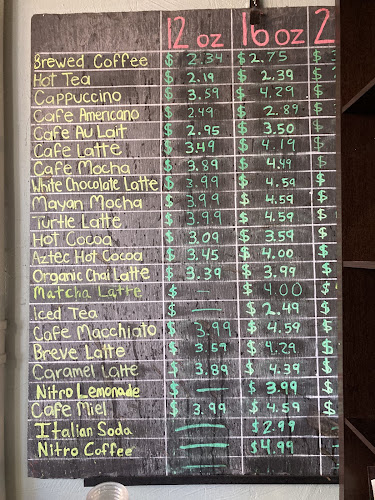 12 oz 16 oz 2
Brewed Coffee $ 2.34 $ 2.75 $
Hot Tea $ 2.19 $ 2.39 $
Cappuccino $ 3.59 $ 4.29 $
Cafe Americano $ 2.49 $ 2.89 $
Cafe Au Lait $ 2.95 $ 3.50 $
Cafe Latte $ 3.49 $ 4.19 $
Cafe Mocha $ 3.89 $ 4.49 $
White Chocolate Latte $ 3.99 $ 4.59 $
Mayan Mocha $ 3.99 $ 4.59 $
Turtle Latte $ 3.99 $ 4.59 $
Hot Cocoa $ 3.09 $ 3.59 $
Aztec Hot Cocoa $ 3.45 $ 4.00 $
Organic Chai Latte $ 3.39 $ 3.99 $
Matcha Latte $ — $ 4.00 $
Iced Tea $ — $ 2.49 $
Cafe Macchiato $ 3.99 $ 4.59 $
Breve Latte $ 3.59 $ 4.29 $
Caramel Latte $ 3.89 $ 4.39 $
Nitro Lemonade $ — $ 3.99 $
Cafe Miel $ 3.99 $ 4.59 $
Italian Soda — $2.99
Nitro Coffee — $4.99